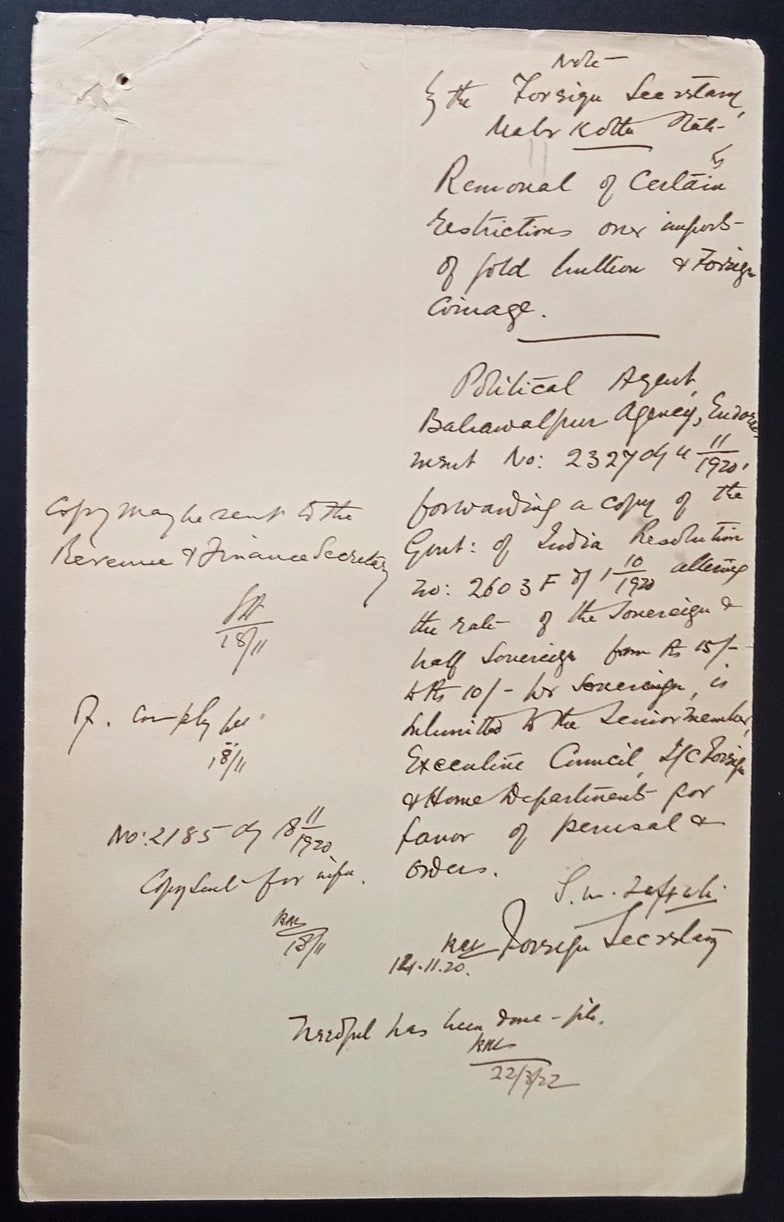 Note
by the Foreign Secretary,
Maler Kotla State
Removal of Certain
restrictions over import
of gold bullion & Foreign
Coinage.
Political Agent,
Bahawalpur Agency, Endorse
ment No: 2327 of 4 11/1920,
forwarding a copy of the
Govt: of India Resolution
no: 2603 F of 1 10/1920 altering
the rate of the Sovereign &
half Sovereign from Rs 15/-
to Rs 10/- per Sovereign, is
submitted to the Senior member,
Executive Council, I/C Foreign
& Home Departments for
favor of perusal &
orders.
Foreign Secretary
14.11.20.
Copy may be sent to the
Revenue & Finance Secretary
18/11
18/11
No: 2185 of 18 11/1920
Copy sent for infn.
18/11
Needful has been done - file.
22/3/22